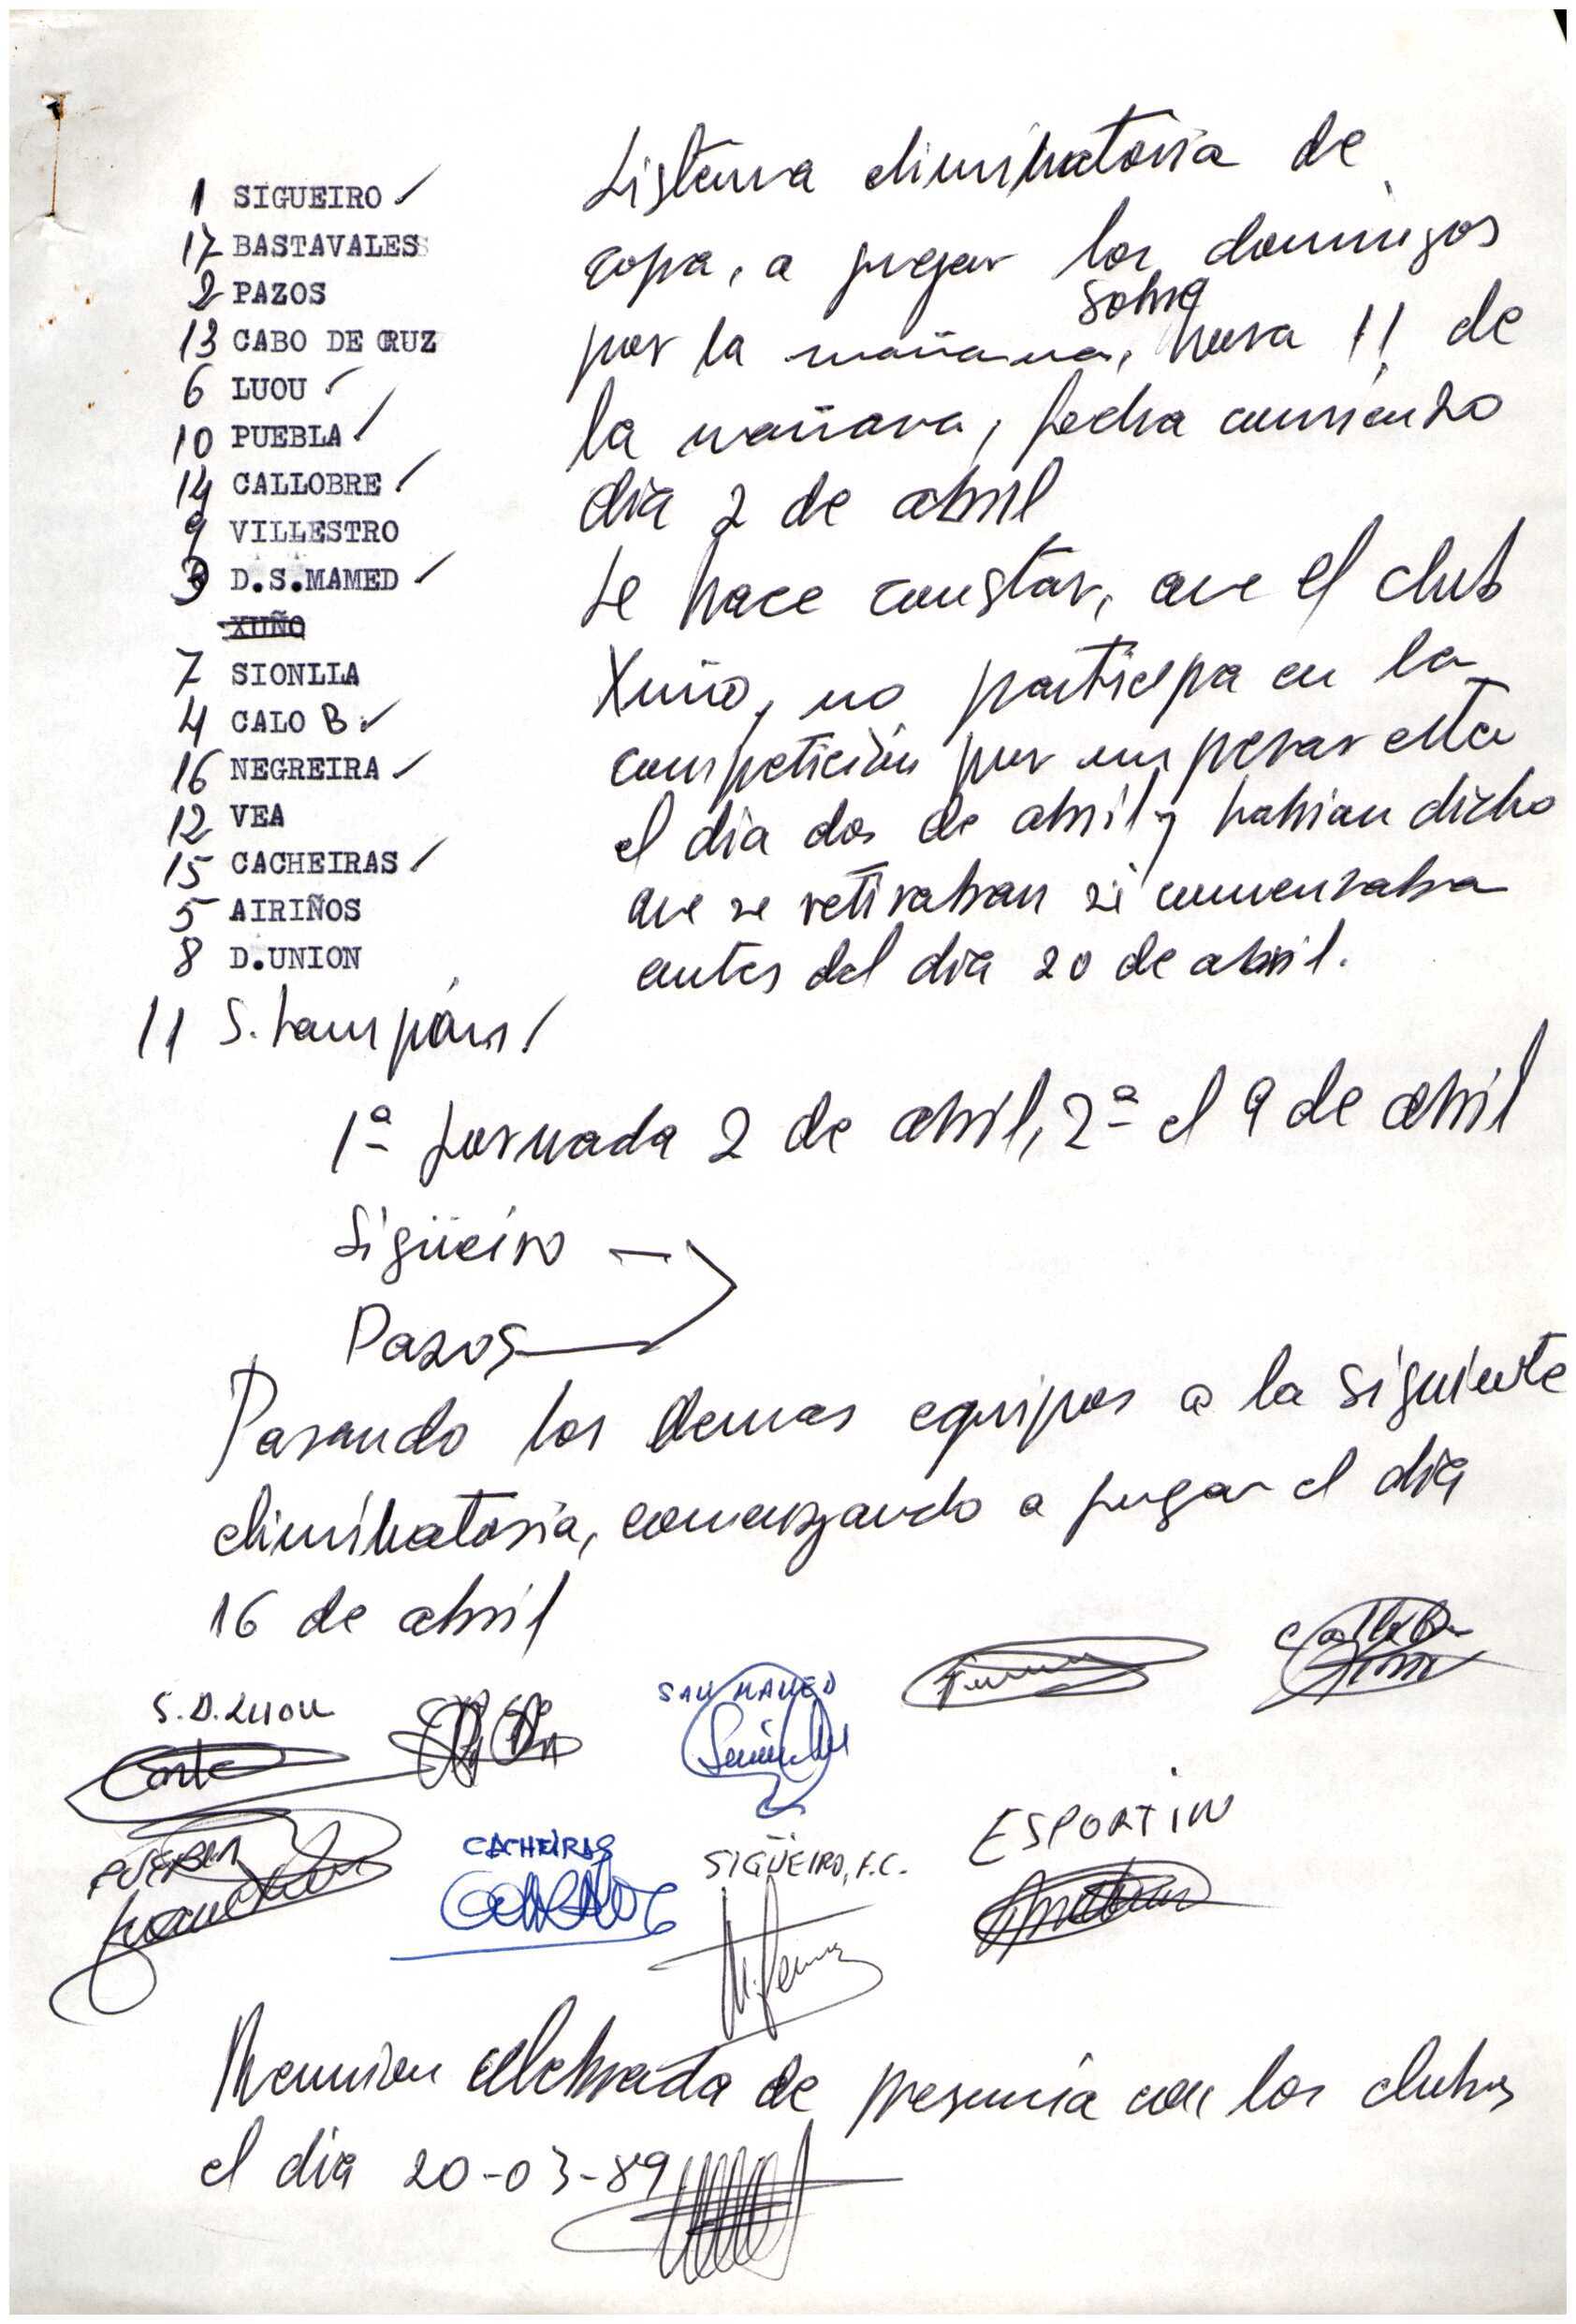 1 SIGUEIRO ✓
17 BASTAVALES
2 PAZOS
13 CABO DE CRUZ
6 LUOU ✓
10 PUEBLA ✓
14 CALLOBRE ✓
9 VILLESTRO
3 D.S.MAMED ✓
XUÑO
7 SIONLLA
4 CALO B ✓
16 NEGREIRA ✓
12 VEA
15 CACHEIRAS ✓
5 AIRIÑOS
8 D.UNION
11 S. Lampáis ✓
Sistema eliminatoria de
copa, a jugar los domingos
sobre
por la mañana, hora 11 de
la mañana, fecha comienzo
dia 2 de abril
Se hace constar, que el club
Xuño, no participa en la
competición por empezar esta
el dia dos de abril y habian dicho
que se retiraban si comenzaba
antes del dia 20 de abril.
1ª Jornada 2 de abril, 2ª el 9 de abril
Sigüeiro
Pazos
Pasando los demas equipos a la siguiente
eliminatoria, comenzando a jugar el dia
16 de abril
S.D. LUOU
SAN MAMED
CALLOBRE
PUEBLA
CACHEIRAS
SIGÜEIRO, F.C.
ESPORTIN
Reunion celebrada de presencia con los clubs
el dia 20-03-89